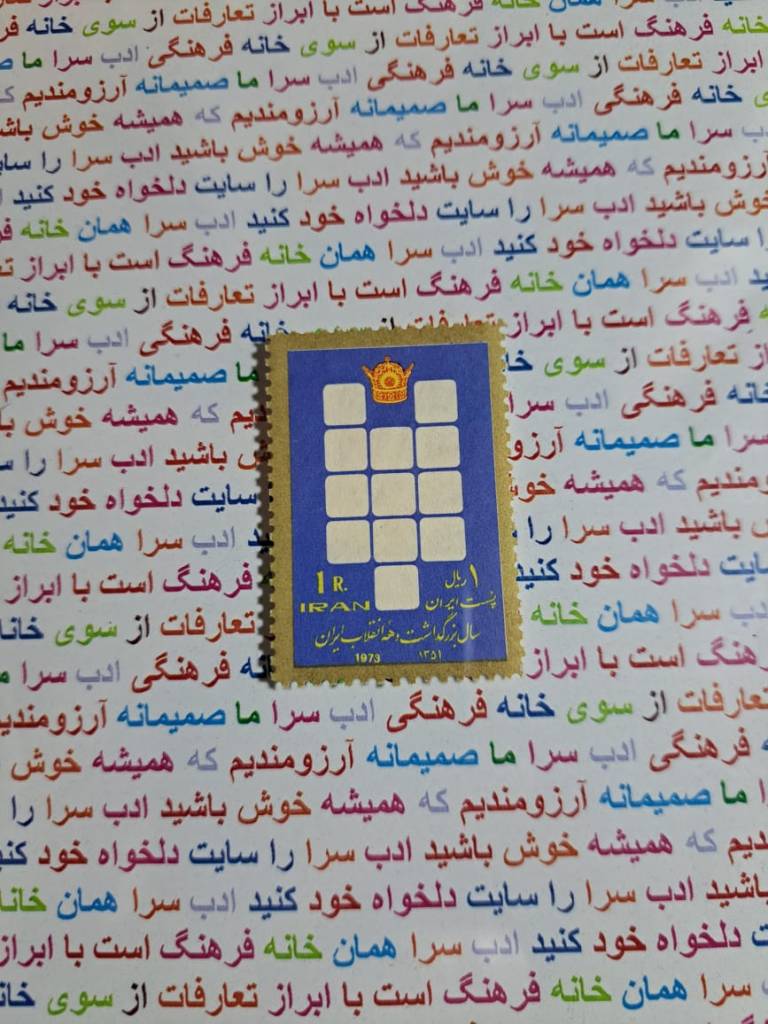 سرا همان خانه فرهنگ است با ابراز تعارفات از سوی خانه
خانه فرهنگ است با ابراز تعارفات از سوی خانه فرهنگی ادب سرا ما
ابراز تعارفات از سوی خانه فرهنگی ادب سرا ما صمیمانه آرزومندیم
خانه فرهنگی ادب سرا ما صمیمانه آرزومندیم که همیشه خوش
سرا ما صمیمانه آرزومندیم که همیشه خوش باشید ادب سرا را
آرزومندیم که همیشه خوش باشید ادب سرا را سایت دلخواه خود کنید
خوش باشید ادب سرا را سایت دلخواه خود کنید ادب سرا همان خانه
سایت دلخواه خود کنید ادب سرا همان خانه فرهنگ است با ابراز
ادب سرا همان خانه فرهنگ است با ابراز تعارفات از سوی خانه
فرهنگ است با ابراز تعارفات از سوی خانه فرهنگی ادب سرا ما
تعارفات از سوی خانه
فرهنگی ادب سرا ما صمیمانه
سرا ما صمیمانه آرزومندیم که همیشه خوش
صمیمانه که همیشه خوش باشید ادب سرا را
باشید ادب سرا را سایت دلخواه خود کنید
سایت دلخواه خود کنید ادب سرا همان خانه
۱ ریال
1 R.
پست ایران
IRAN
سال بزرگداشت دهه انقلاب ایران
۱۳۵۱
1973
ادب سرا همان خانه فرهنگ است با ابراز
خانه فرهنگ است با ابراز تعارفات از سوی خانه
تعارفات از سوی خانه فرهنگی ادب سرا ما صمیمانه آرزومندیم
فرهنگی ادب سرا ما صمیمانه آرزومندیم که همیشه خوش
ما صمیمانه آرزومندیم که همیشه خوش باشید ادب سرا را
که همیشه خوش باشید ادب سرا را سایت دلخواه خود
باشید ادب سرا را سایت دلخواه خود کنید ادب سرا همان خانه
دلخواه خود کنید ادب سرا همان خانه فرهنگ است با ابراز
سرا همان خانه فرهنگ است با ابراز تعارفات از سوی